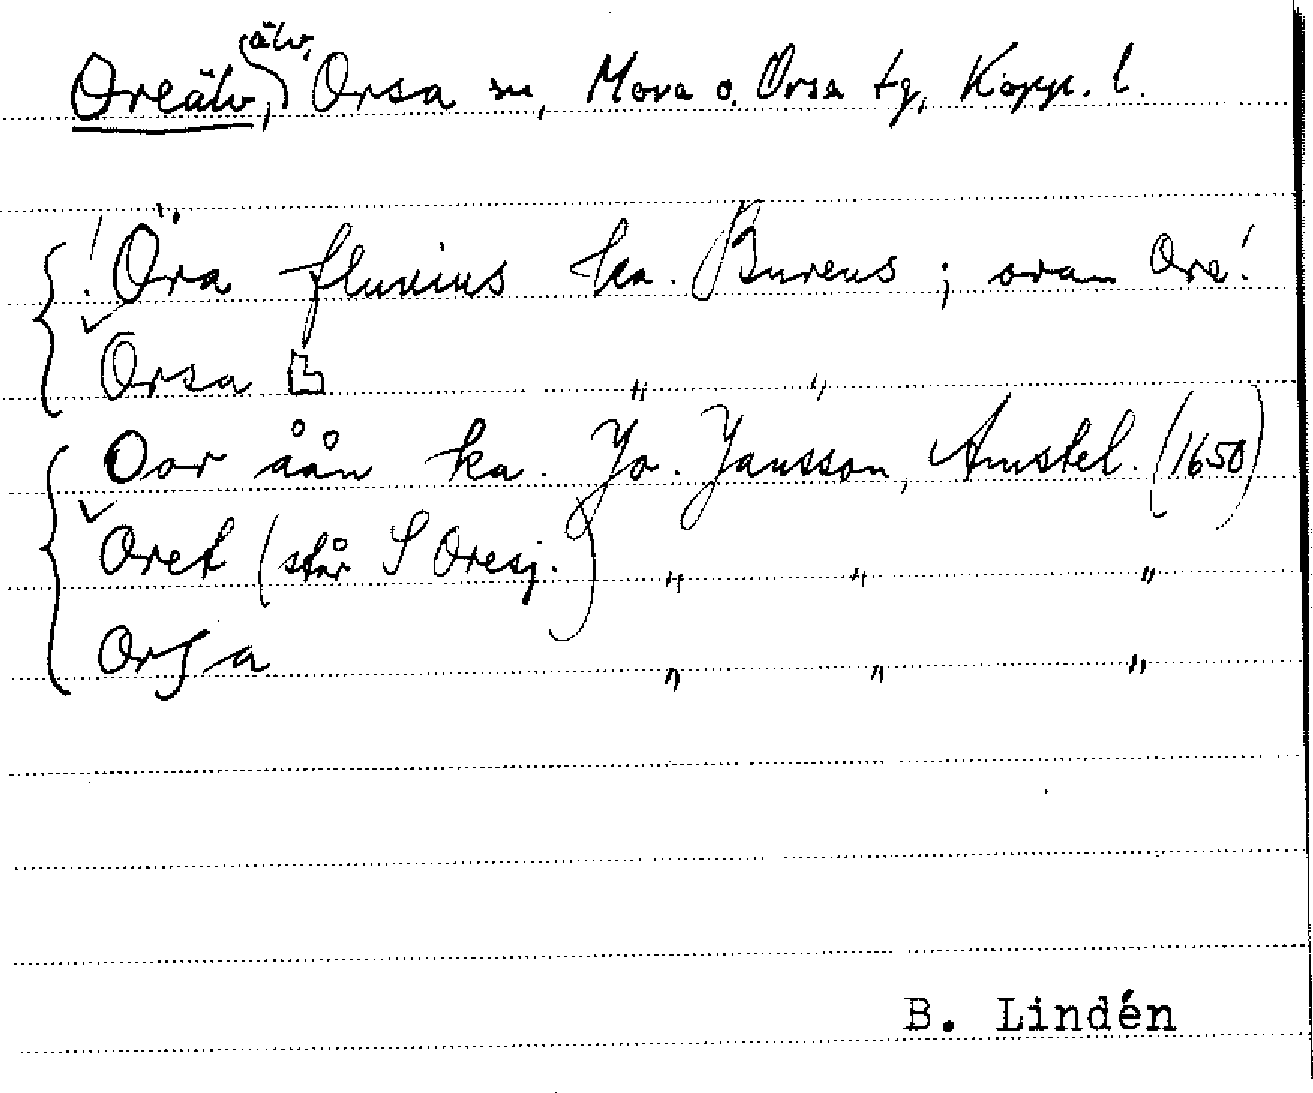 Oreälv, älv, Orsa sn, Mora o. Orsa tg, Kopp. l.
! Öra fluvius ka. Bureus ; ovan Ore!
Orsa " "
Oor åån ka. Jo. Jansson, Amstel. (1650)
Oret (står S Oresj.) " " "
Orſa " " "
B. Lindén